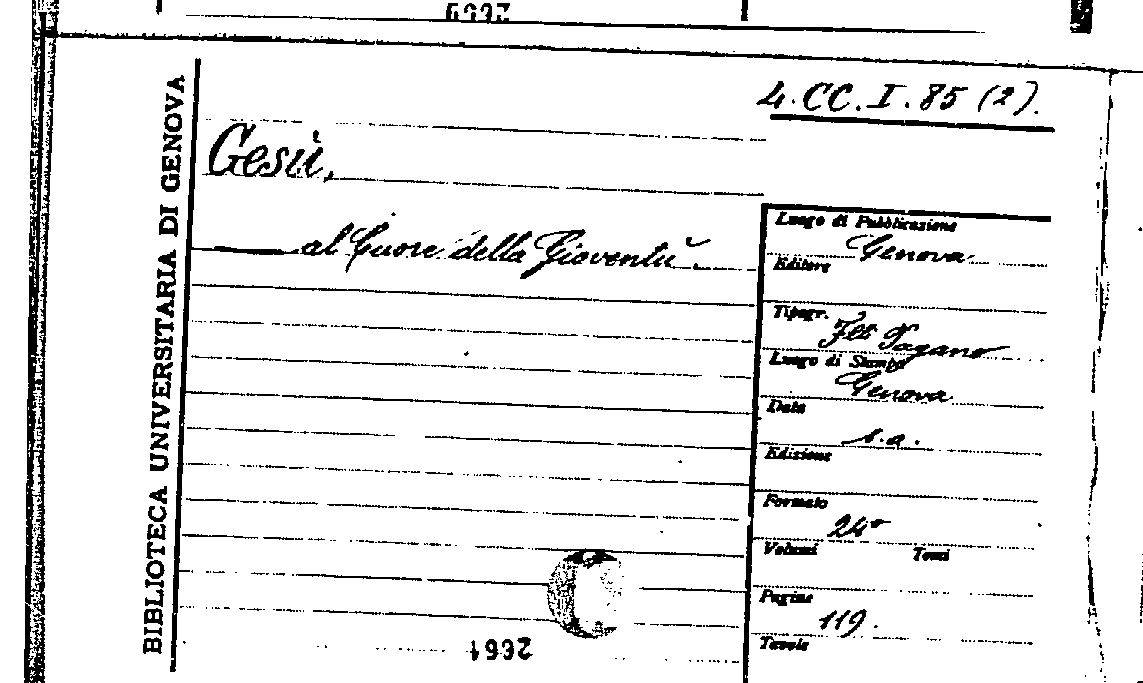 4.CC.I.85 (2).
BIBLIOTECA UNIVERSITARIA DI GENOVA
Gesù,
al Cuore della Gioventù.
Luogo di Pubblicazione
Genova
Editore
Tipogr.
Flli Pagano
Luogo di Stampa
Genova
Data
s.a.
Edizione
Formato
24°
Volumi Tomi
Pagine
119.
Tavole